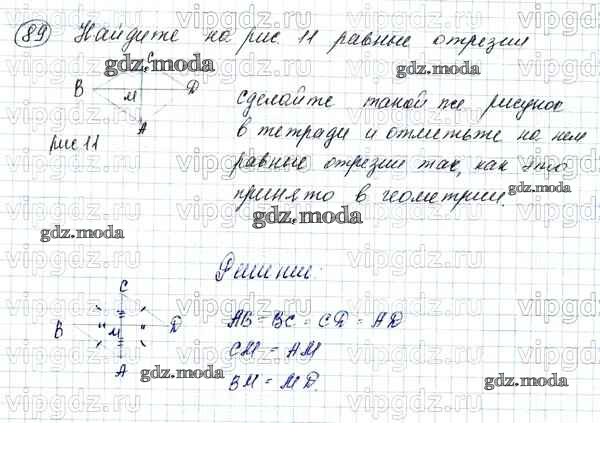 89 Найдите на рис 11 равные отрезки
C
B M D
A
рис 11
сделайте такой же рисунок
в тетради и отметьте на нем
равные отрезки так, как это
принято в геометрии.
Решение:
C
B M D
A
AB = BC = CD = AD
CM = AM
BM = MD.
gdz.moda
gdz.moda
gdz.moda
gdz.moda
gdz.moda
gdz.moda
gdz.moda
vipgdz.ru